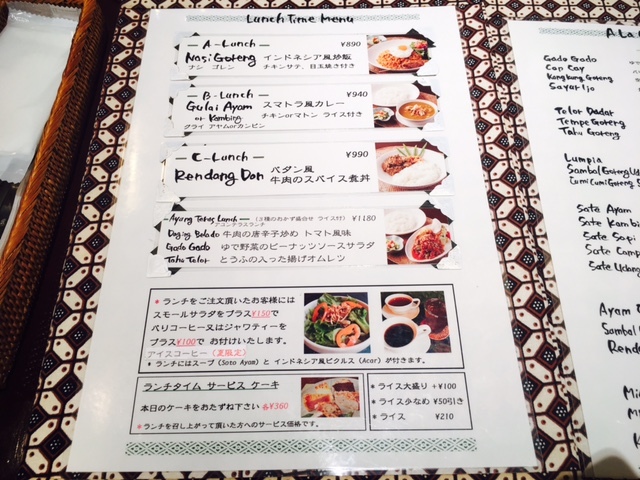 Lunch Time Menu
— A-Lunch — ¥890
Nasi Goreng インドネシア風炒飯
ナシ ゴレン チキンサテ、目玉焼き付き
— B-Lunch — ¥940
Gulai Ayam スマトラ風カレー
or Kambing チキンorマトン ライス付き
グライ アヤムorカンビン
— C-Lunch — ¥990
Rendang Don パダン風
牛肉のスパイス煮丼
— Ayung Teras Lunch — (3種のおかず盛合せ ライス付) ¥1180
アユンテラスランチ
Daging Balado 牛肉の唐辛子炒め トマト風味
Gado Gado ゆで野菜のピーナッツソースサラダ
Tahu Telor とうふの入った揚げオムレツ
* ランチをご注文頂いたお客様には
スモールサラダをプラス¥150で
バリコーヒー又はジャワティーを
プラス¥100で お付けいたします。
アイスコーヒー(夏限定)
* ランチにはスープ(Soto Ayam)と インドネシア風ピクルス(Acar)が付きます。
ランチタイム サービス ケーキ
本日のケーキをおたずね下さい 各¥360
* ランチを召し上がって頂いた方へのサービス価格です。
* ライス大盛り +¥100
* ライス少なめ ¥50引き
* ライス ¥210
A La
Gado Gado
Cap Cay
Kangkung Goreng
Sayur Ijo
Telor Dadar
Tempe Goreng
Tahu Goreng
Lumpia
Sambal Goreng U
Cumi Cumi Goreng
Sate Ayam
Sate Kambi
Sate Sapi
Sate Camp
Sate Udang
Ayam
Sambal
Renda
Mi